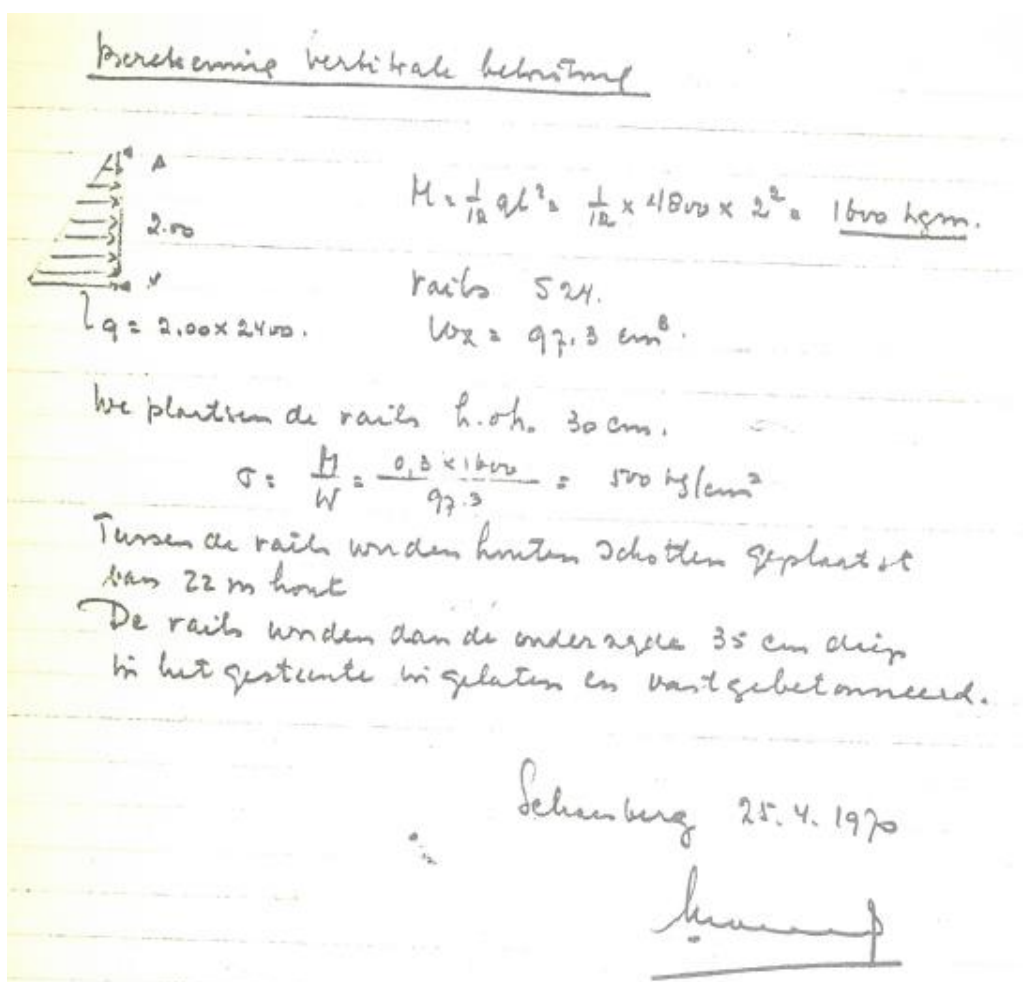 Berekening vertikale bekisting
A
2.00
M = 1/12 ql² = 1/12 x 4800 x 2² = 1600 kgm.
q = 2.00 x 2400.
rails S24.
Wx = 97,3 cm³.
We plaatsen de rails h.oh. 30 cm.
σ = M/W = 0,3 x 1600 / 97.3 = 500 kg/cm²
Tussen de rails worden houten schotten geplaatst
van 22 m hout
De rails worden aan de onderzyde 35 cm diep
in het gesteente in gelaten en vastgebetonneerd.
Schaesberg 25.4.1970